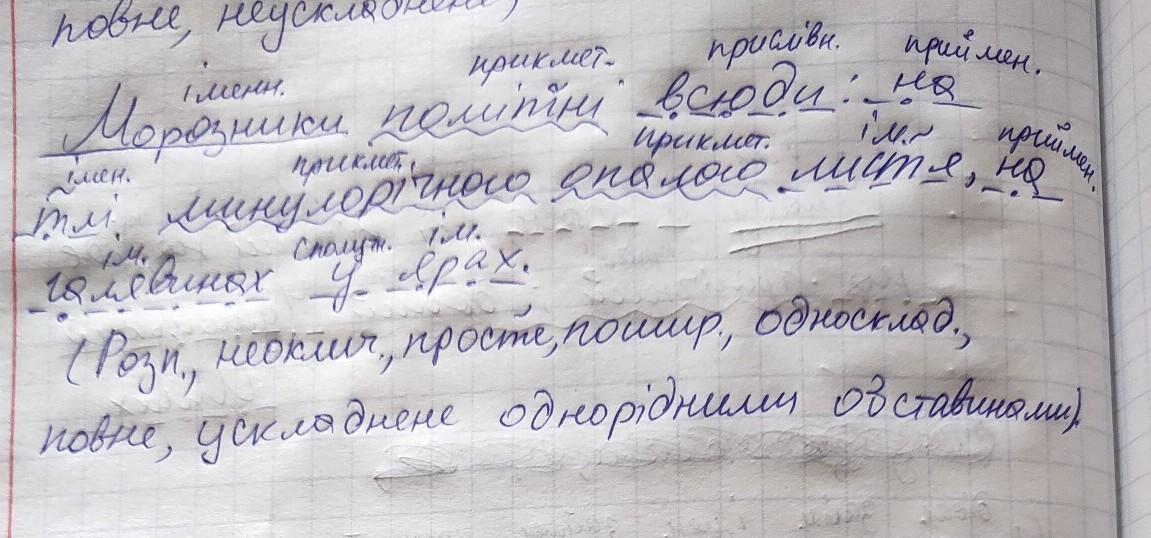 повне, неускладнене,
іменн. прикмет. прислівн. приймен.
Морозники помітні всюди: на
імен. прикмет. прикмет. ім. приймен.
тлі минулорічного опалого листя, на
ім. сполуч. ім.
галявинах у ярах.
(Розп., неоклич., просте, пошир., односклад.,
повне, ускладнене однорідними обставинами).